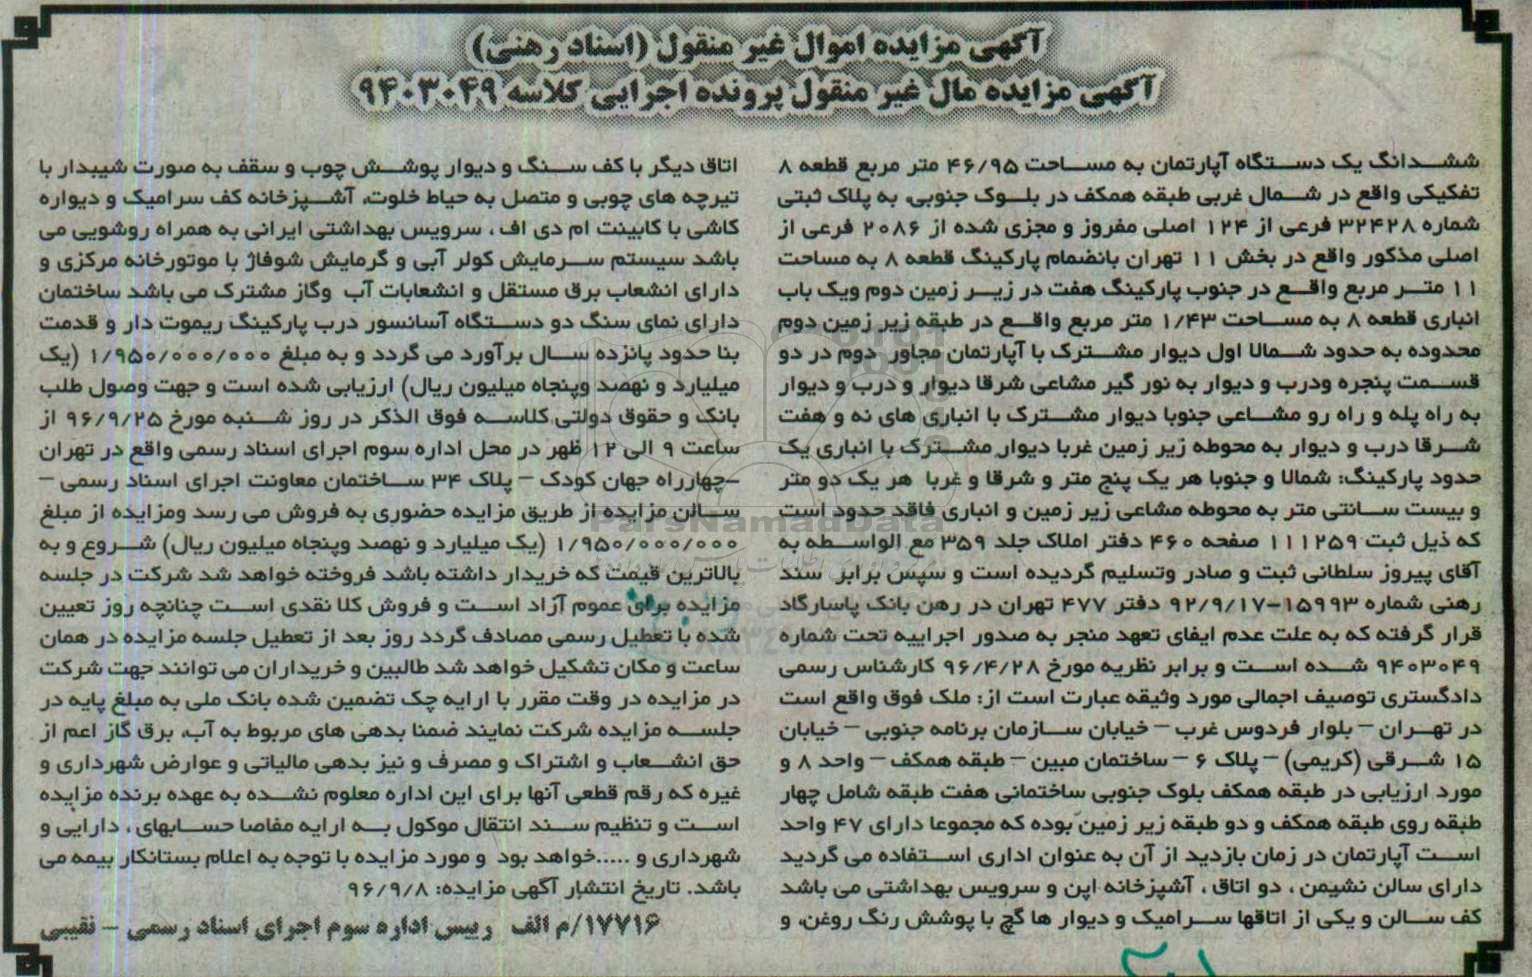 آگهی مزایده اموال غیر منقول (اسناد رهنی)
آگهی مزایده مال غیر منقول پرونده اجرایی کلاسه ۹۴۰۳۰۴۹
ششدانگ یک دستگاه آپارتمان به مساحت ۴۶/۹۵ متر مربع قطعه ۸
تفکیکی واقع در شمال غربی طبقه همکف در بلوک جنوبی، به پلاک ثبتی
شماره ۳۲۴۲۸ فرعی از ۱۲۴ اصلی مفروز و مجزی شده از ۲۰۸۶ فرعی از
اصلی مذکور واقع در بخش ۱۱ تهران بانضمام پارکینگ قطعه ۸ به مساحت
۱۱ متر مربع واقع در جنوب پارکینگ هفت در زیر زمین دوم ویک باب
انباری قطعه ۸ به مساحت ۱/۴۳ متر مربع واقع در طبقه زیر زمین دوم
محدوده به حدود شمالا اول دیوار مشترک با آپارتمان مجاور دوم در دو
قسمت پنجره ودرب و دیوار به نور گیر مشاعی شرقا دیوار و درب و دیوار
به راه پله و راه رو مشاعی جنوبا دیوار مشترک با انباری های نه و هفت
شرقا درب و دیوار به محوطه زیر زمین غربا دیوار مشترک با انباری یک
حدود پارکینگ: شمالا و جنوبا هر یک پنج متر و شرقا و غربا هر یک دو متر
و بیست سانتی متر به محوطه مشاعی زیر زمین و انباری فاقد حدود است
که ذیل ثبت ۱۱۱۲۵۹ صفحه ۴۶۰ دفتر املاک جلد ۳۵۹ مع الواسطه به
آقای پیروز سلطانی ثبت و صادر وتسلیم گردیده است و سپس برابر سند
رهنی شماره ۱۵۹۹۳-۹۲/۹/۱۷ دفتر ۴۷۷ تهران در رهن بانک پاسارگاد
قرار گرفته که به علت عدم ایفای تعهد منجر به صدور اجراییه تحت شماره
۹۴۰۳۰۴۹ شده است و برابر نظریه مورخ ۹۶/۴/۲۸ کارشناس رسمی
دادگستری توصیف اجمالی مورد وثیقه عبارت است از: ملک فوق واقع است
در تهران – بلوار فردوس غرب – خیابان سازمان برنامه جنوبی – خیابان
۱۵ شرقی (کریمی) – پلاک ۶ – ساختمان مبین – طبقه همکف – واحد ۸ و
مورد ارزیابی در طبقه همکف بلوک جنوبی ساختمانی هفت طبقه شامل چهار
طبقه روی طبقه همکف و دو طبقه زیر زمین بوده که مجموعا دارای ۴۷ واحد
است آپارتمان در زمان بازدید از آن به عنوان اداری استفاده می گردید
دارای سالن نشیمن ، دو اتاق ، آشپزخانه اپن و سرویس بهداشتی می باشد
کف سالن و یکی از اتاقها سرامیک و دیوار ها گچ با پوشش رنگ روغن، و
اتاق دیگر با کف سنگ و دیوار پوشش چوب و سقف به صورت شیبدار با
تیرچه های چوبی و متصل به حیاط خلوت، آشپزخانه کف سرامیک و دیواره
کاشی با کابینت ام دی اف ، سرویس بهداشتی ایرانی به همراه روشویی می
باشد سیستم سرمایش کولر آبی و گرمایش شوفاژ با موتورخانه مرکزی و
دارای انشعاب برق مستقل و انشعابات آب وگاز مشترک می باشد ساختمان
دارای نمای سنگ دو دستگاه آسانسور درب پارکینگ ریموت دار و قدمت
بنا حدود پانزده سال برآورد می گردد و به مبلغ ۱/۹۵۰/۰۰۰/۰۰۰ (یک
میلیارد و نهصد وپنجاه میلیون ریال) ارزیابی شده است و جهت وصول طلب
بانک و حقوق دولتی کلاسه فوق الذکر در روز شنبه مورخ ۹۶/۹/۲۵ از
ساعت ۹ الی ۱۲ ظهر در محل اداره سوم اجرای اسناد رسمی واقع در تهران
–چهارراه جهان کودک – پلاک ۳۴ ساختمان معاونت اجرای اسناد رسمی –
سالن مزایده از طریق مزایده حضوری به فروش می رسد ومزایده از مبلغ
۱/۹۵۰/۰۰۰/۰۰۰ (یک میلیارد و نهصد وپنجاه میلیون ریال) شروع و به
بالاترین قیمت که خریدار داشته باشد فروخته خواهد شد شرکت در جلسه
مزایده برای عموم آزاد است و فروش کلا نقدی است چنانچه روز تعیین
شده با تعطیل رسمی مصادف گردد روز بعد از تعطیل جلسه مزایده در همان
ساعت و مکان تشکیل خواهد شد طالبین و خریداران می توانند جهت شرکت
در مزایده در وقت مقرر با ارایه چک تضمین شده بانک ملی به مبلغ پایه در
جلسه مزایده شرکت نمایند ضمنا بدهی های مربوط به آب، برق گاز اعم از
حق انشعاب و اشتراک و مصرف و نیز بدهی مالیاتی و عوارض شهرداری و
غیره که رقم قطعی آنها برای این اداره معلوم نشده به عهده برنده مزایده
است و تنظیم سند انتقال موکول به ارایه مفاصا حسابهای ، دارایی و
شهرداری و .....خواهد بود و مورد مزایده با توجه به اعلام بستانکار بیمه می
باشد. تاریخ انتشار آگهی مزایده: ۹۶/۹/۸
۱۷۷۱۶/م الف رییس اداره سوم اجرای اسناد رسمی – نقیبی
ParsNamadData